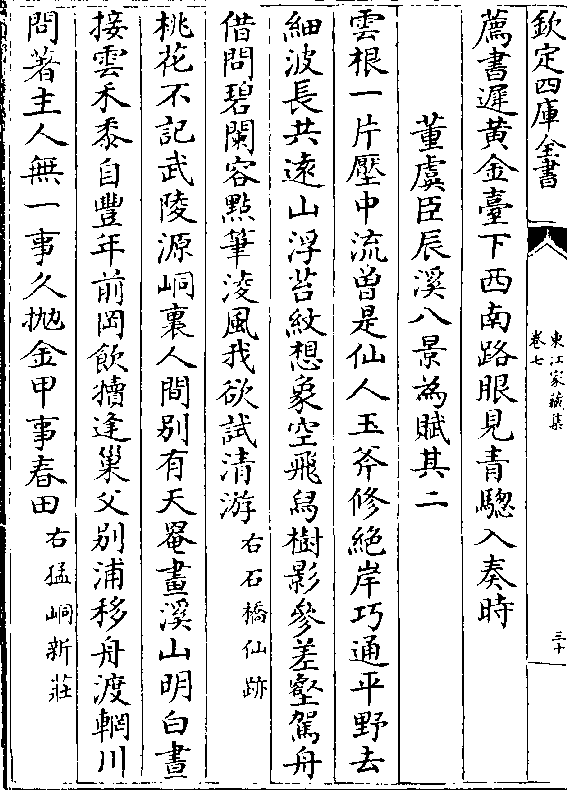 欽定四庫全書
東江家藏集
卷七
三十
薦書遲黃金臺下西南路眼見青驄入奏時
董虞臣辰溪八景為賦其二
雲根一片壓中流曽是仙人玉斧修絶岸巧通平野去
細波長共遠山浮苔紋想象空飛舄樹影參差壑駕舟
借問碧闌容點筆淩風我欲試清游右石橋仙跡
桃花不記武陵源峒裏人間别有天罨畫溪山明白晝
接雲禾黍自豐年前岡飲犢逢巢父别浦移舟渡輞川
問著主人無一事久抛金甲事春田右猛峒新莊